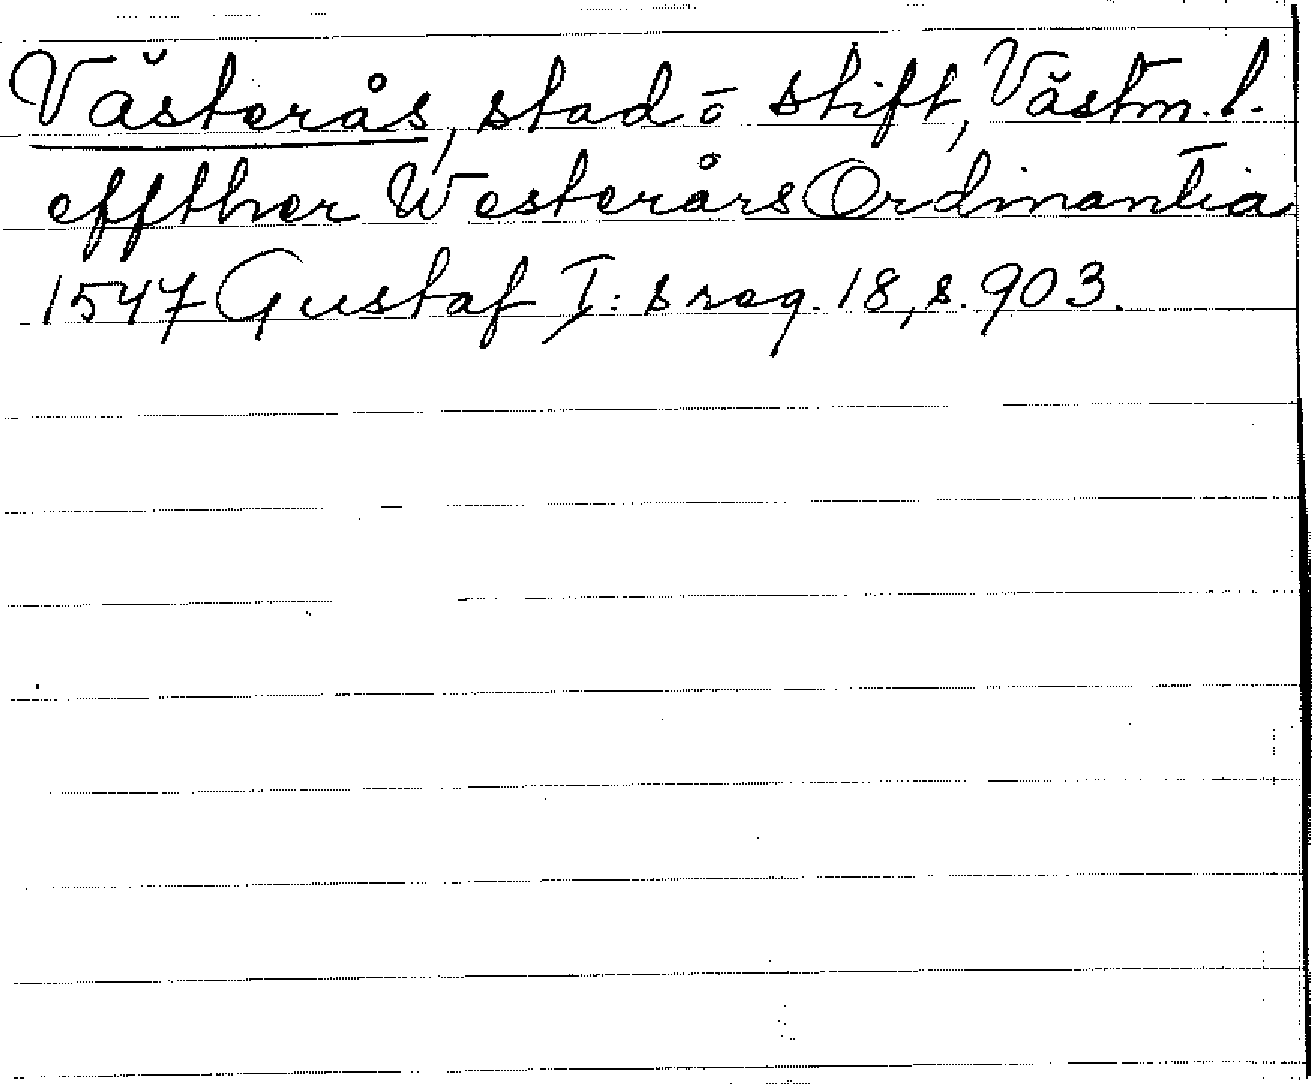 Västerås, stad o stift, Västm. l.
effther Westerårs Ordinantia
1547 Gustaf I: s reg. 18, s. 903.